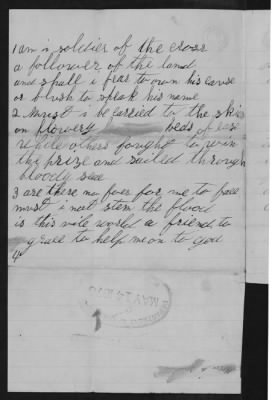 1 am i a soldier of the cross
a follower of the land
and shall i fear to own his cause
or blush to speak his name
2 Must i be carried to the skis
on flowery beds of ease
while others fought to win
the prize and sailed through
bloody seas
3 are there no foes for me to face
must i not stem the flood
is this vile world a friend to
grace to help me on to god
4
MAY 24